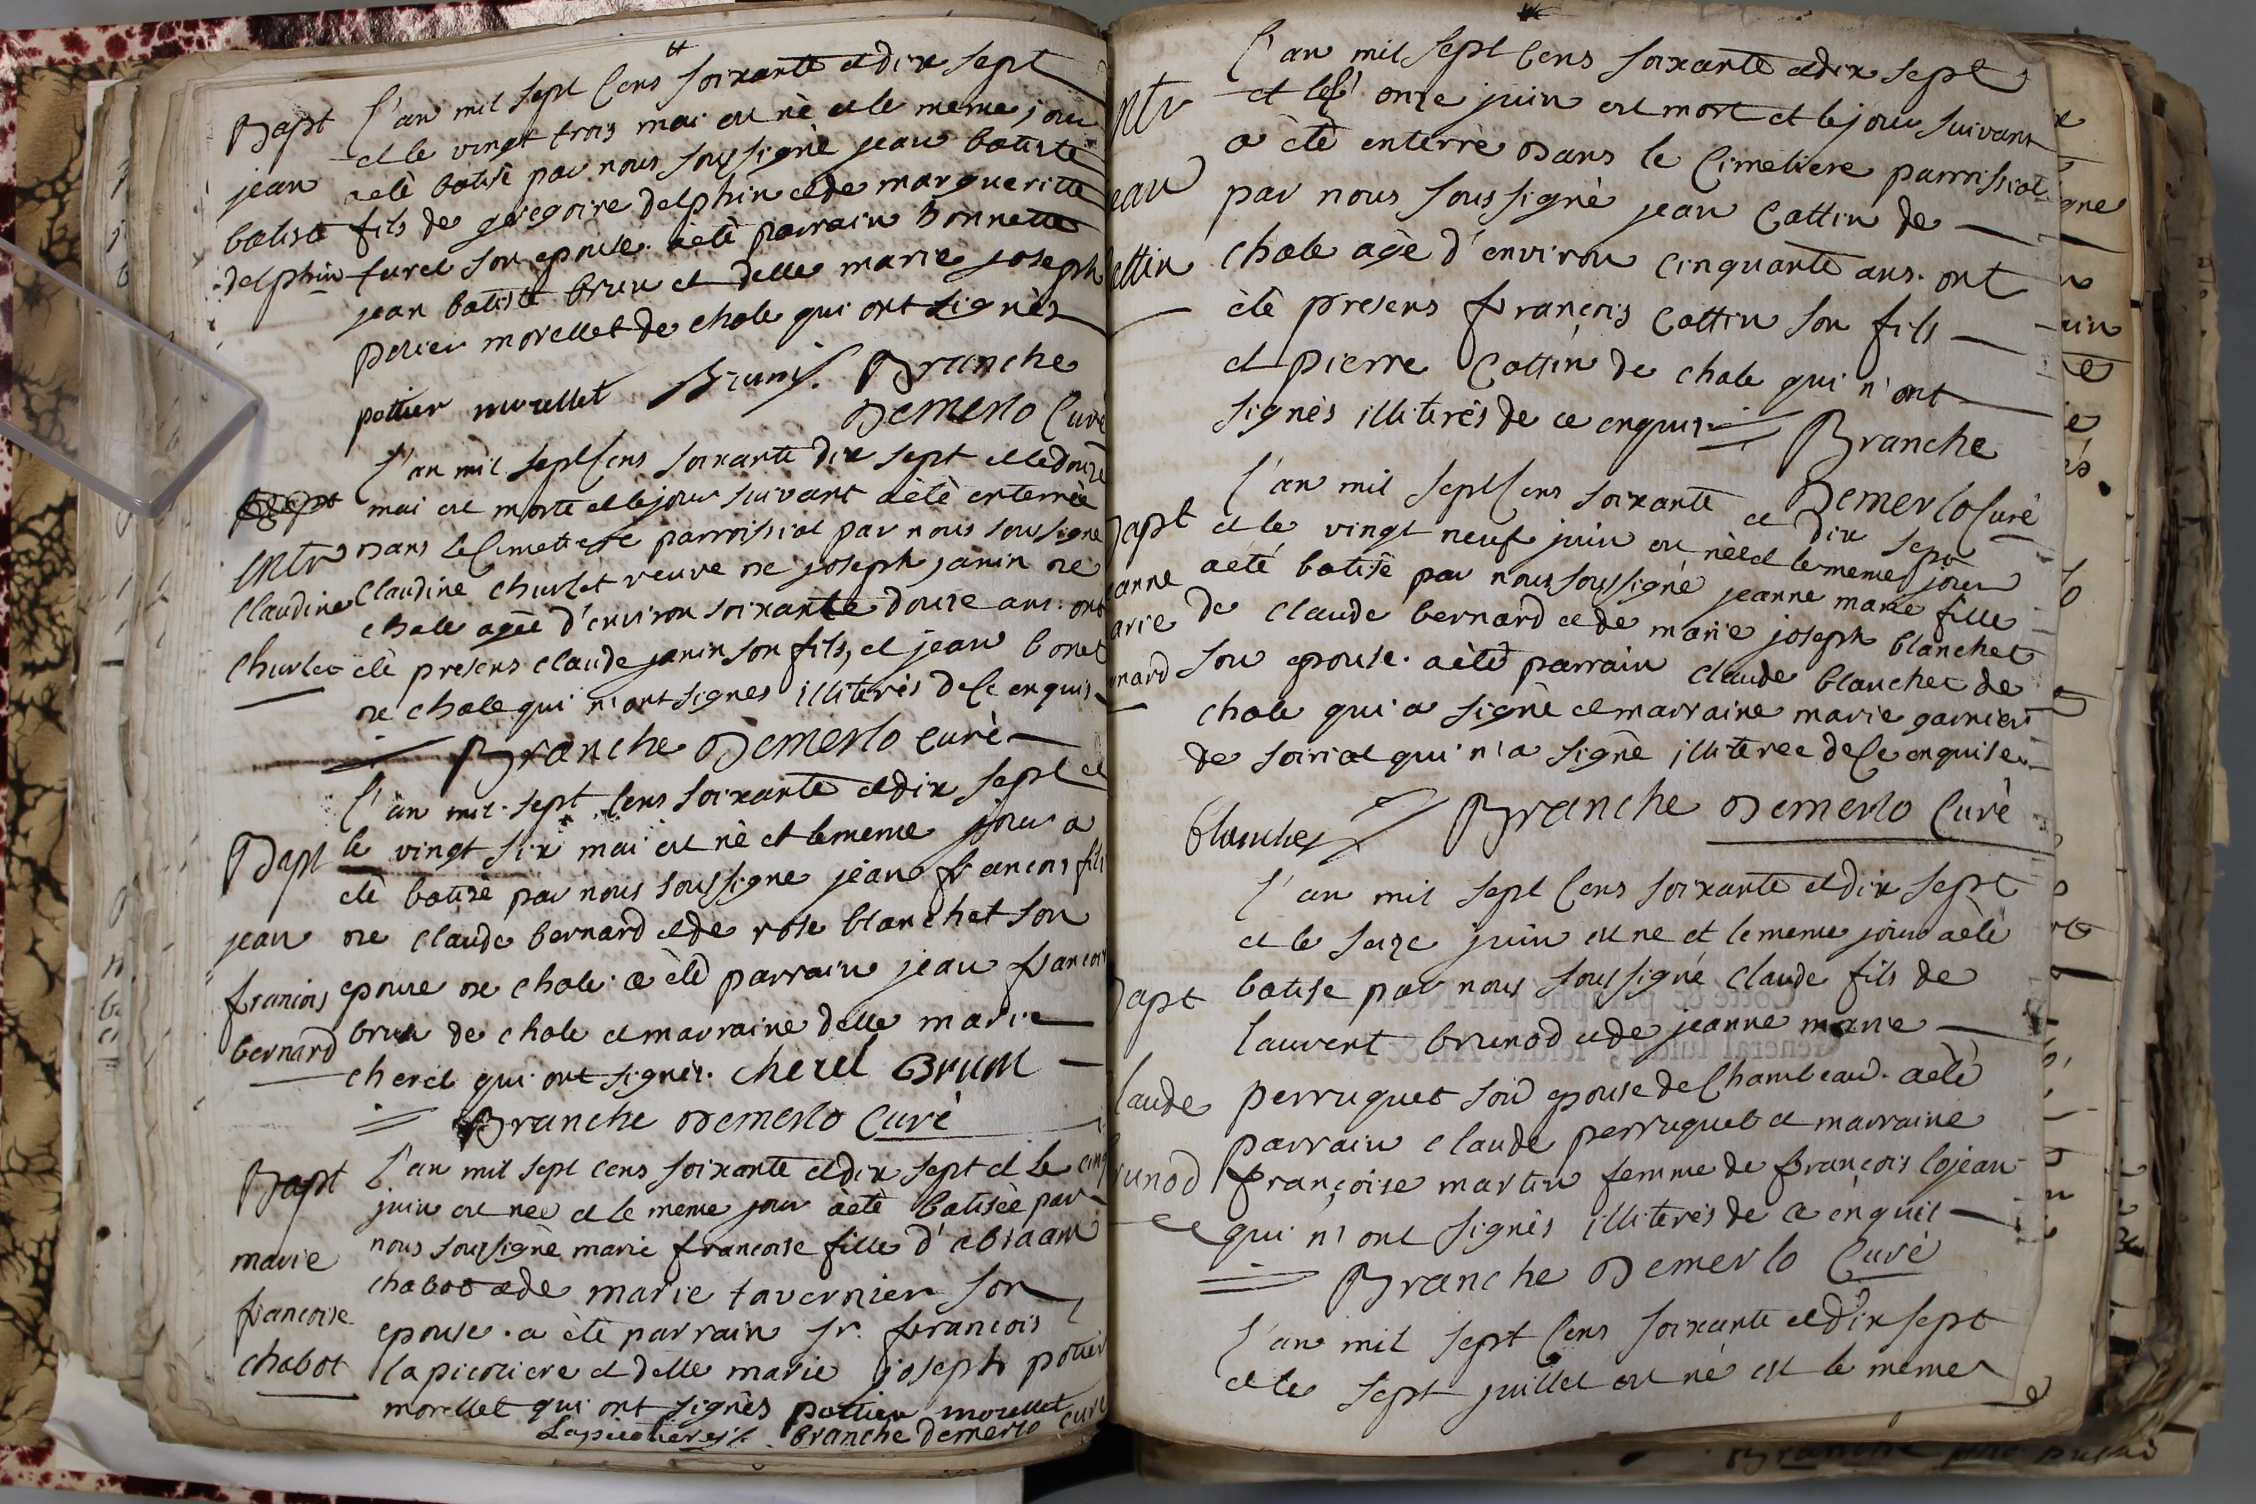 Bapt
jean
batiste
delphin
l'an mil sept Cens soixante et dix sept
et le vingt trois mai est nè et le meme jour
a etè batisè par nous soussignè jean batiste
fils de gregoire delphin et de margueritte
furet son epouse. a etè parrain honnette
jean batiste brun et delle marie joseph
potier morellet de chale qui ont signès
pottier morellet Brun Branche
Demerlo Curè
Entr
Claudine
Churlet
l'an mil sept Cens soixante dix sept et le douze
mai est morte et le jour suivant a ètè enterrèe
dans le Cimetiere parroissial par nous soussignè
Claudine Churlet veuve de joseph janin de
chale agèe d'environ soixante douze ans. ont
etè presens claude janin son fils, et jean bonet
de chale qui n'ont signes illiterès de Ce enquis
Branche Demerlo curè
Bapt
jean
francois
bernard
l'an mil sept Cens soixante et dix sept et
le vingt six mai est nè et le meme jour a
etè batisè par nous soussigne jean francois fils
de claude bernard et de rose blanchet son
epouse de chale. a ètè parrain jean francois
brun de chale et marraine delle marie
cheret qui ont signès. cheret Brun
Branche Demerlo Curè
Bapt
marie
francoise
chabot
l'an mil sept cens soixante et dix sept et le cinq
juin est nee et le meme jour a ètè batisèe par
nous soussignè marie francoise fille d'abraam
chabot et de marie tavernier son
epouse. a ètè parrain sr. francois
lapierriere et delle marie joseph potier
morellet qui ont signès pottier morellet
branche demerlo curè
l'an mil sept Cens soixante et dix sept
et le onze juin est mort et le jour suivant
a ètè enterrè dans le Cimetiere parroissial
par nous soussignè jean Cottin de
chale agè d'environ cinquante ans. ont
ètè presens françois Cottin son fils
et pierre Cottin de chale qui n'ont
signès illiterès de ce enquis Branche
Demerlo Curè
l'an mil sept Cens soixante et dix sept
et le vingt neuf juin est nèe et le meme jour
a etè batisè par nous soussigné jeanne marie fille
de claude bernard et de marie joseph blanchet
son epouse. a ètè parrain claude blanchet de
chale qui a signè et marraine marie garnier
de soiriat qui n'a signè illiteree de Ce enquise
blanchet Branche Demerlo Curè
l'an mil sept Cens soixante et dix sept
et le seize juin est ne et le meme jour a ètè
batise par nous soussignè claude fils de
laurent brunod et de jeanne marie
perruquet son epouse de Chambeau. a ètè
parrain claude perruquet et marraine
françoise martin femme de françois lojean
qui n'ont signès illiterès de ce enquis
Branche Demerlo Curè
l'an mil sept Cens soixante et dix sept
et le sept juillet est nè et le meme